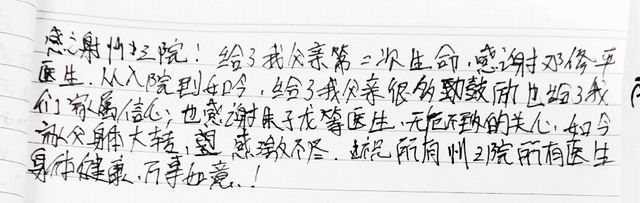 感谢州立院！给了我父亲第二次生命，感谢对邓修平
医生，从入院到如今，给了我父亲很多劲鼓励也给了我
们家属信心，也感谢朱子龙等医生，无危不致的关心，如今
父身体大转，望 感激不尽. 祝所有州立院所有医生
身体健康、万事如意！